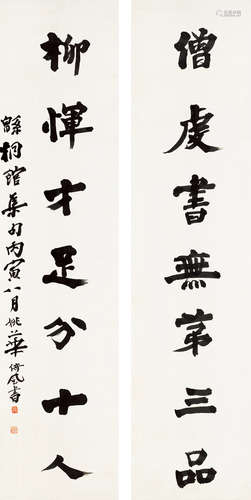 僧虔書無第三品
柳惲才足分十人
緜桐館集句丙寅八月姚華倚風書